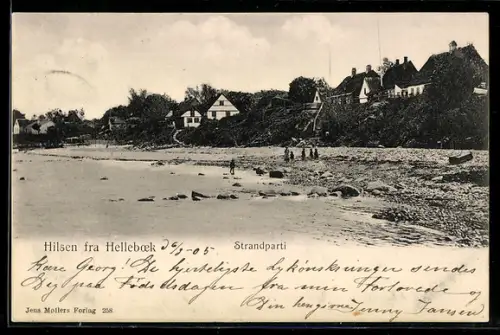 Hilsen fra Hellebœk 26/3 - 05 Strandparti
Kære Georg! De hjerteligste lykønskninger sendes
Dig paa Fødselsdagen fra min Forlovede og
Din hengivne Jenny Jansen
Jens Møllers Forlag 258.